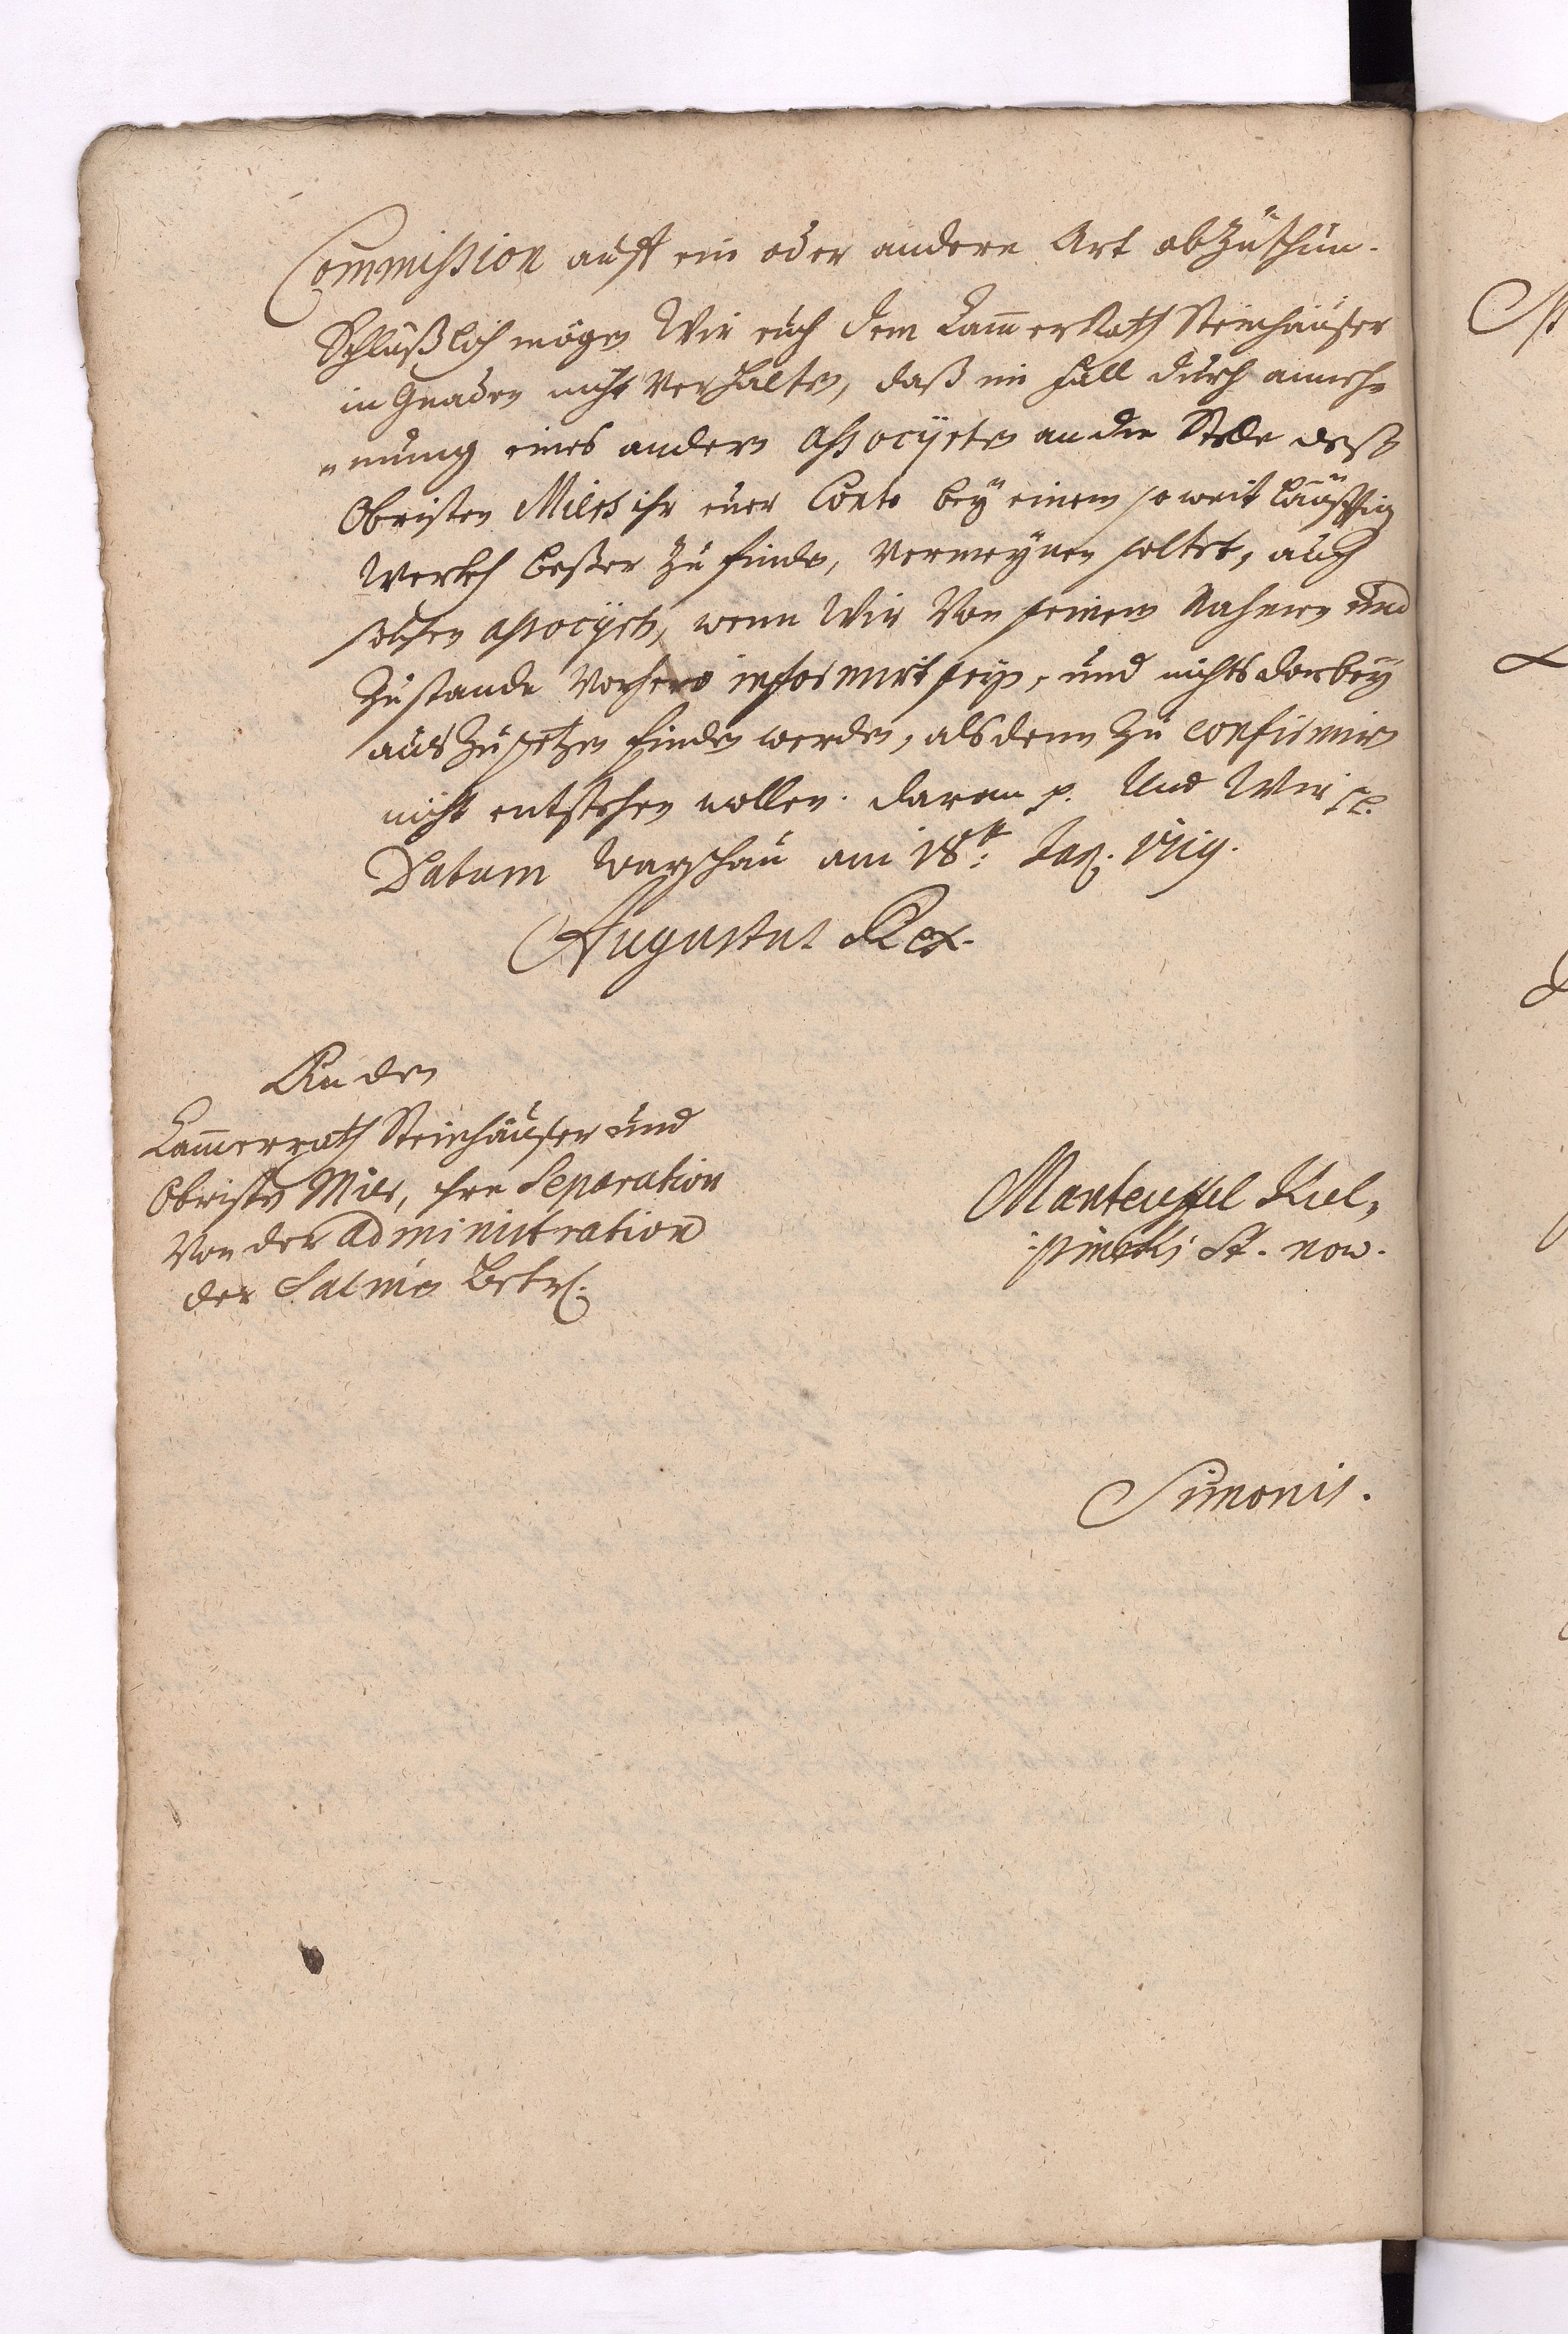 Commission auff ein oder andere Art abzuthun.
Schlüßlich mögen Wir euch dem CammerRath Steinhäuser
in Gnaden nicht Verhalten, daß im Fall durch anneh„
„mung eines andern Associrten an die Stelle deß
Obristen Miles ihr euer Conto bey einem so weitläufftig
Werckh beßer zu finden, vermeynen soltet, auch
solchen Associrten, wenn Wir Von seinem Nahmen und
Zustande Vorhero informirt seyn, und nichts darbey
auszusetzen finden werden, alsdenn zu confirmiren
nicht entstehen wollen. Daran p. Und Wir pp.
Datum Warschau am 18t: Jan. 1719.
Augustus Rex.
An den
Cammerrath Steinhäuser und
Obristen Miles, ihre Separation
Von der Administration
der Salinen Betr.
Manteuffel Kiel„
Simonis.